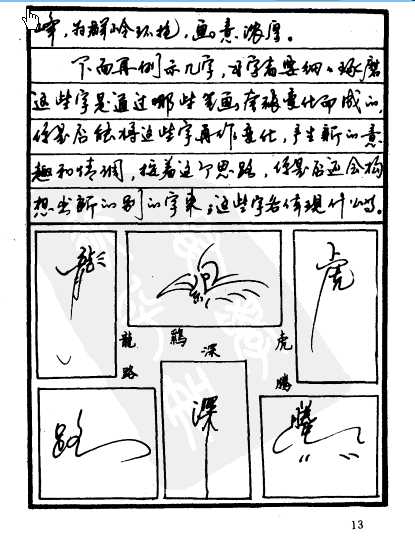 峰，为群岭环抱，画意浓厚。
下面再例示几字，习字者要细细琢磨
这些字是通过哪些笔画夸张变化而成的，
你是否能将这些字再作变化，产生新的意
趣和情调，按着这个思路，你是否还会构
想出新的别的字来，这些字若体现什么吗。
龍 鷄 深 虎
路 騰
龍
虎
路
深
騰
13